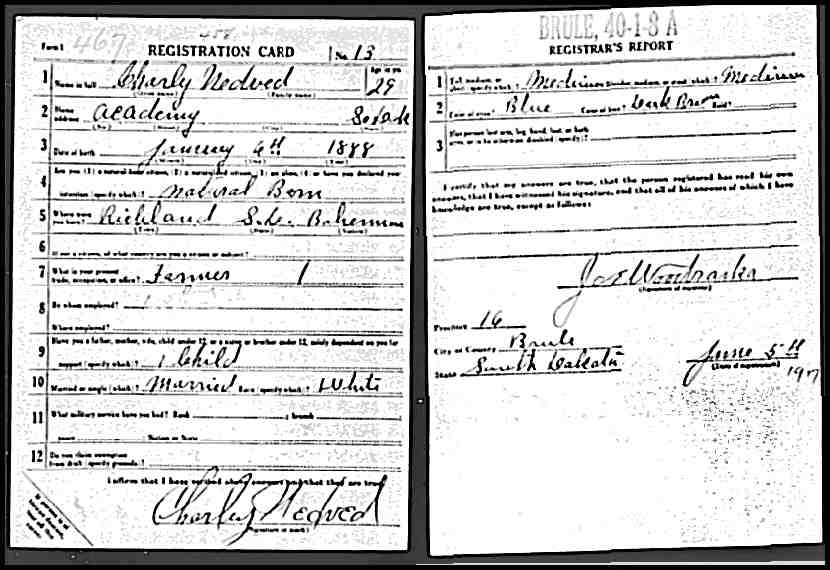 Form 1 467 458 REGISTRATION CARD No. 13
1 Name in full Charly Nedved Age in yrs 29
(Given name) (Family name)
2 Home address Academy So Dak
3 Date of birth January 6th 1888
(Month) (Day) (Year)
4 Are you (1) a natural-born citizen, (2) a naturalized citizen, (3) an alien, (4) or have you declared your
intention (specify which)? Natural Born
5 Where were you born? Richland S. Da. Bohemian
(Town) (State) (Nation)
6 If not a citizen, of what country are you a citizen or subject?
7 What is your present trade, occupation, or office? Farmer 1
8 By whom employed?
Where employed?
9 Have you a father, mother, wife, child under 12, or a sister or brother under 12, solely dependent on you for
support (specify which)? 1 Child
10 Married or single (which)? Married Race (specify which)? White
11 What military service have you had? Rank ; branch
years ; Nation or State
12 Do you claim exemption from draft (specify grounds)?
I affirm that I have verified above answers and that they are true
Charley Nedved
(Signature or mark)
BRULE, 40-1-8 A
REGISTRAR'S REPORT
1 Tall, medium, or short (specify which)? Medium Slender, medium, or stout (which)? Medium
2 Color of eyes? Blue Color of hair? Dark Brown Bald?
3 Has person lost arm, leg, hand, foot, or both
eyes, or is he otherwise disabled (specify)?
I certify that my answers are true, that the person registered has read his own
answers, that I have witnessed his signature, and that all of his answers of which I have
knowledge are true, except as follows:
(Signature of registrar)
Precinct 16
City or County Brule
State South Dakota June 5th
(Date of registration)
1917